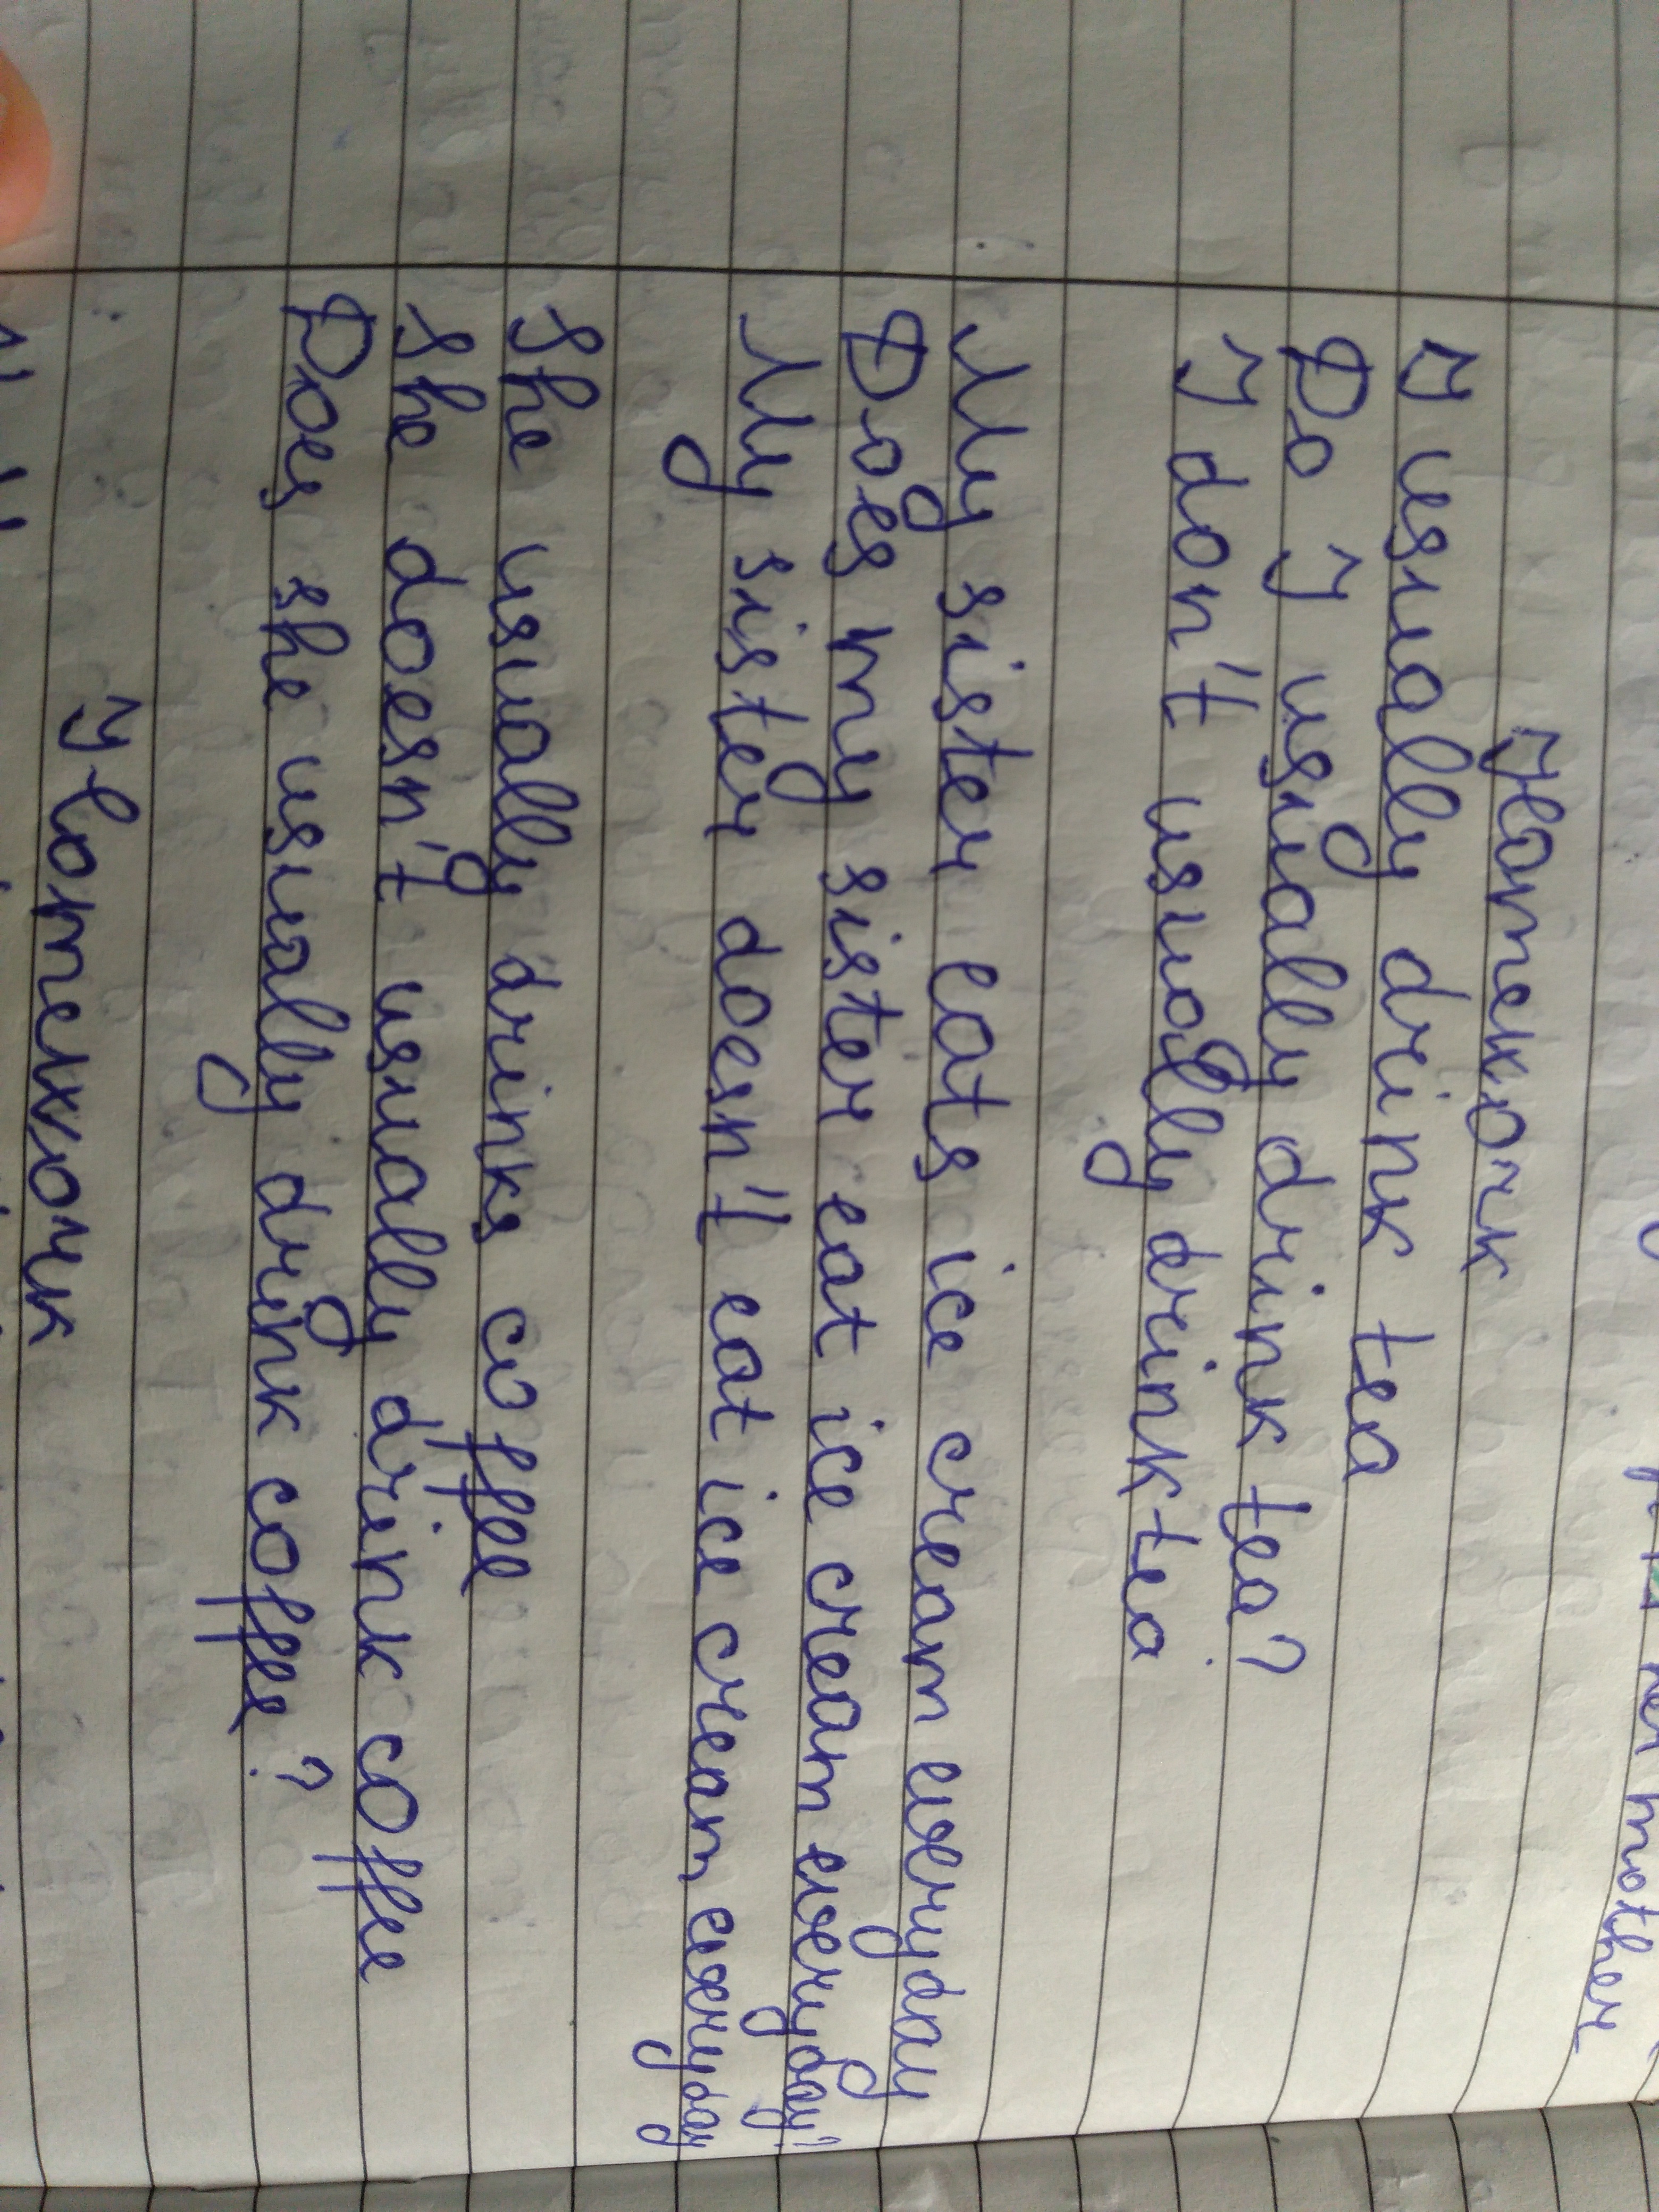 her mother
Homework
I usually drink tea
Do I usually drink tea?
I don't usually drink tea
My sister eats ice cream everyday
Does my sister eat ice cream everyday?
My sister doesn't eat ice cream everyday
She usually drinks coffee
She doesn't usually drink coffee
Does she usually drink coffee?
Homework